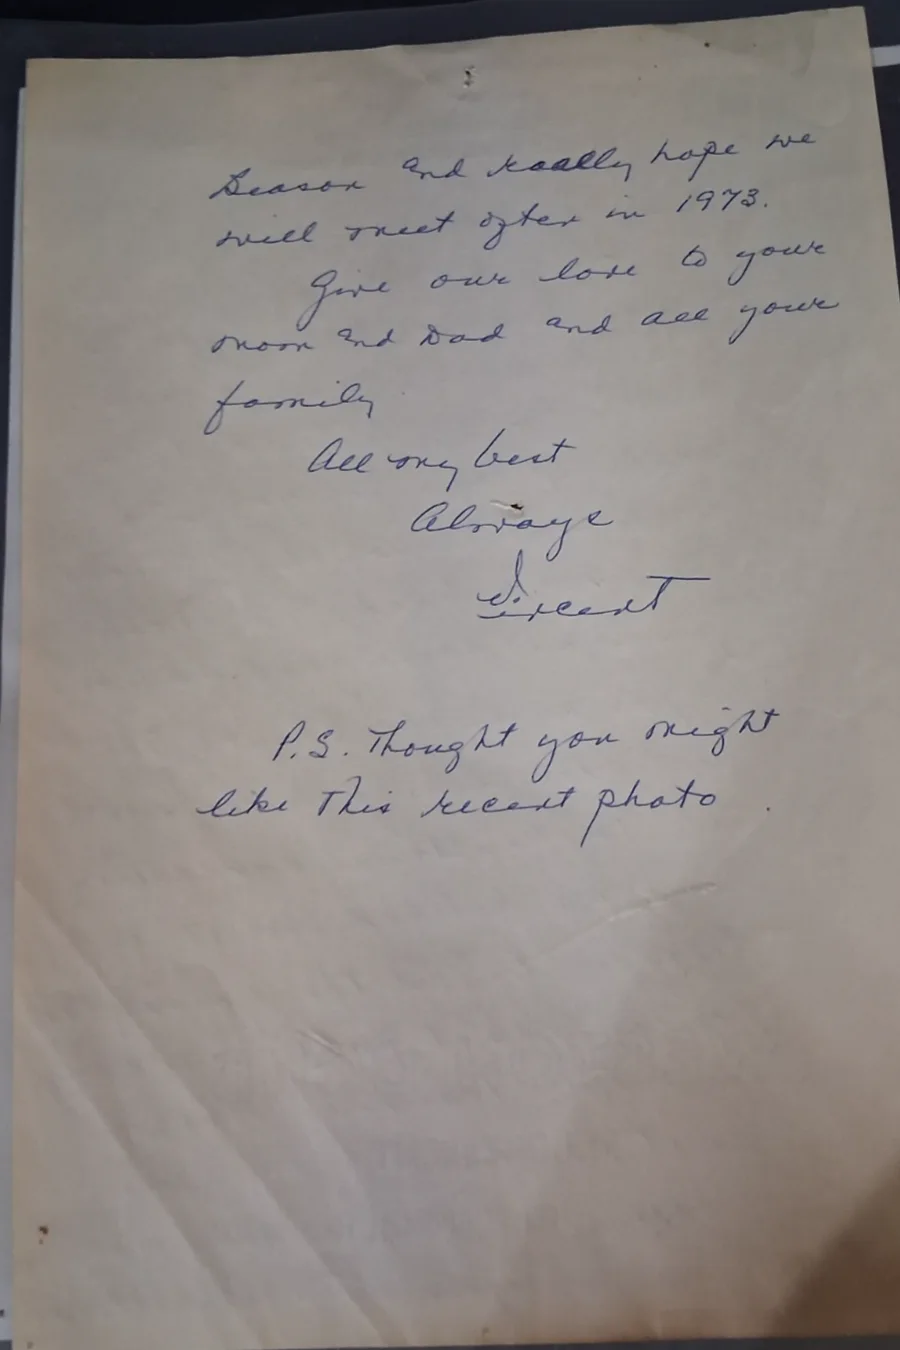 Season and really hope we
will meet often in 1973.
Give our love to your
mom and Dad and all your
family
All my best
Always
Vincent
P.S. Thought you might
like this recent photo.